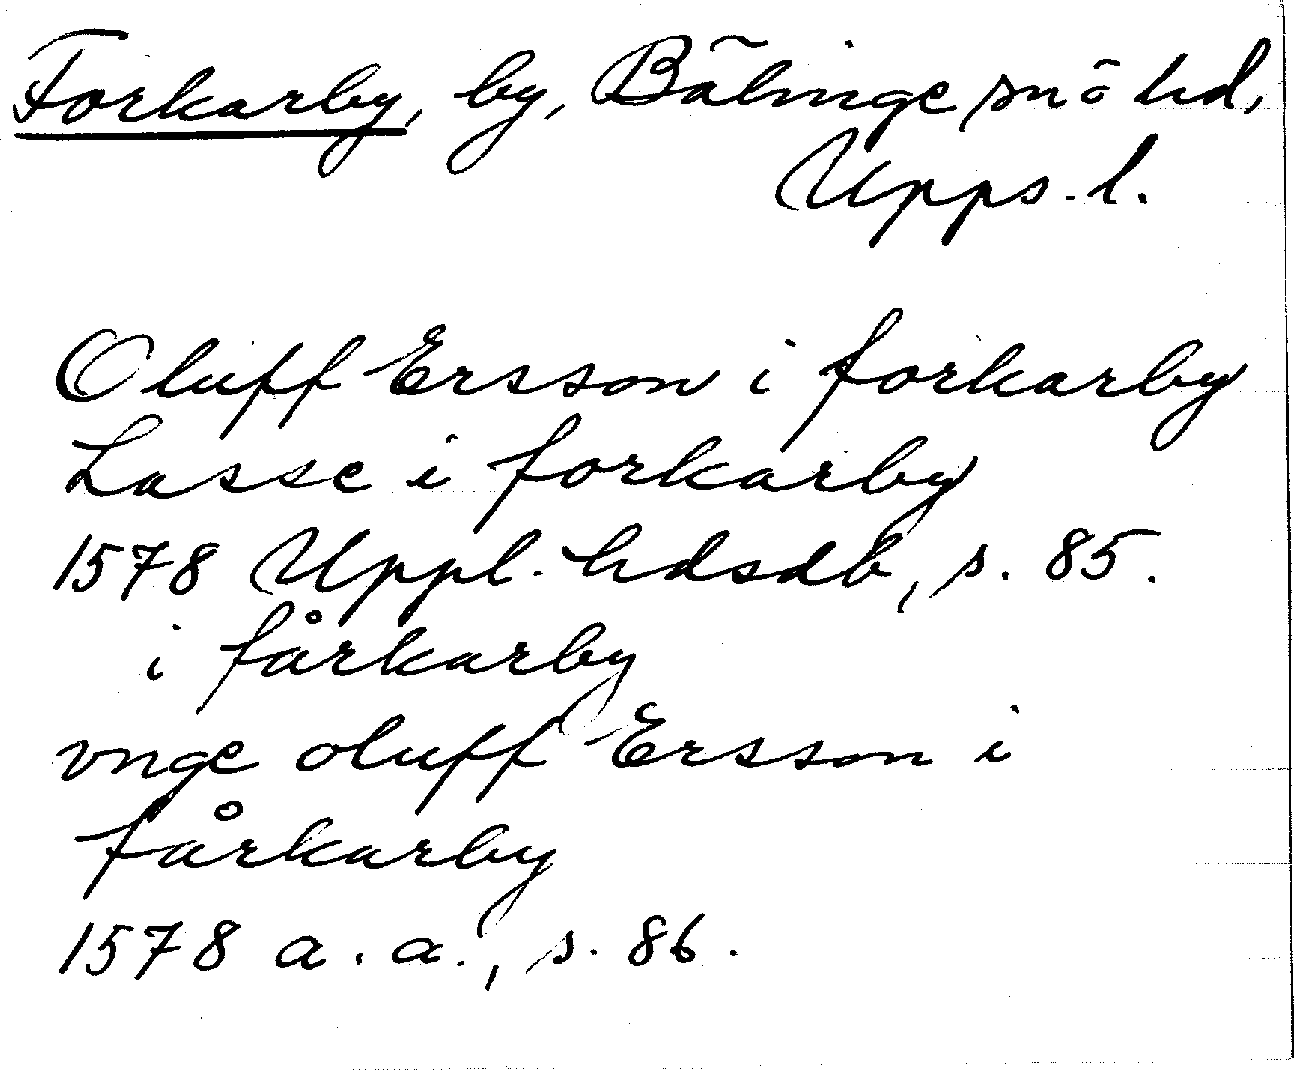 Forkarby, by, Bälinge sn o hd,
Upps. l.
Oluff Ersson i forkarby
Lasse i forkarby
1578 Uppl. hdsdb, s. 85.
i fårkarby
vnge oluff Ersson i
fårkarby
1578 a. a., s. 86.